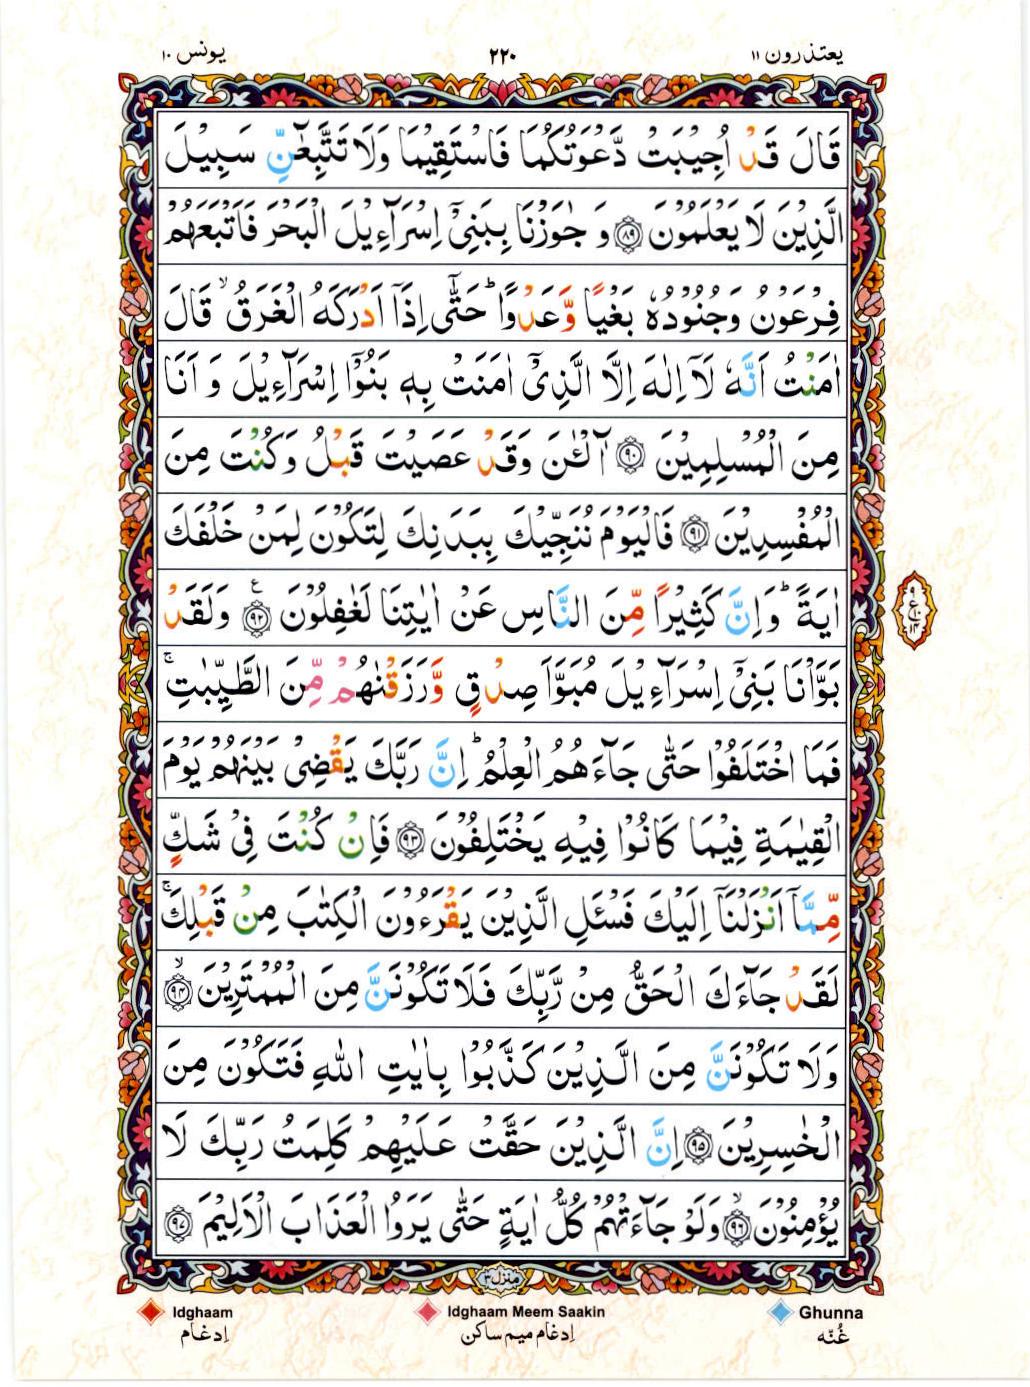 یعتذرون ۱۱
۲۲۰
یونس ۱۰
قَالَ قَدْ اُجِيْبَتْ دَّعْوَتُكُمَا فَاسْتَقِيْمَا وَلَا تَتَّبِعٰٓنِّ سَبِيْلَ
الَّذِيْنَ لَا يَعْلَمُوْنَ ﴿۸۹﴾ وَ جٰوَزْنَا بِبَنِيْٓ اِسْرَآءِيْلَ الْبَحْرَ فَاَتْبَعَهُمْ
فِرْعَوْنُ وَجُنُوْدُهٗ بَغْيًا وَّعَدْوًا ؕ حَتّٰٓى اِذَاۤ اَدْرَكَهُ الْغَرَقُ ۙ قَالَ
اٰمَنْتُ اَنَّهٗ لَاۤ اِلٰهَ اِلَّا الَّذِيْٓ اٰمَنَتْ بِهٖ بَنُوْۤا اِسْرَآءِيْلَ وَ اَنَا
مِنَ الْمُسْلِمِيْنَ ﴿۹۰﴾ آٰلْـٰٔنَ وَقَدْ عَصَيْتَ قَبْلُ وَكُنْتَ مِنَ
الْمُفْسِدِيْنَ ﴿۹۱﴾ فَالْيَوْمَ نُنَجِّيْكَ بِبَدَنِكَ لِتَكُوْنَ لِمَنْ خَلْفَكَ
اٰيَةً ؕ وَاِنَّ كَثِيْرًا مِّنَ النَّاسِ عَنْ اٰيٰتِنَا لَغٰفِلُوْنَ ﴿۹۲﴾ ع وَلَقَدْ
بَوَّاْنَا بَنِيْٓ اِسْرَآءِيْلَ مُبَوَّاَ صِدْقٍ وَّرَزَقْنٰهُمْ مِّنَ الطَّيِّبٰتِ ۚ
فَمَا اخْتَلَفُوْا حَتّٰى جَآءَهُمُ الْعِلْمُ ؕ اِنَّ رَبَّكَ يَقْضِيْ بَيْنَهُمْ يَوْمَ
الْقِيٰمَةِ فِيْمَا كَانُوْا فِيْهِ يَخْتَلِفُوْنَ ﴿۹۳﴾ فَاِنْ كُنْتَ فِيْ شَكٍّ
مِّمَّاۤ اَنْزَلْنَاۤ اِلَيْكَ فَسْـَٔلِ الَّذِيْنَ يَقْرَءُوْنَ الْكِتٰبَ مِنْ قَبْلِكَ ۚ
لَقَدْ جَآءَكَ الْحَقُّ مِنْ رَّبِّكَ فَلَا تَكُوْنَنَّ مِنَ الْمُمْتَرِيْنَ ۙ ﴿۹۴﴾
وَلَا تَكُوْنَنَّ مِنَ الَّذِيْنَ كَذَّبُوْا بِاٰيٰتِ اللّٰهِ فَتَكُوْنَ مِنَ
الْخٰسِرِيْنَ ﴿۹۵﴾ اِنَّ الَّذِيْنَ حَقَّتْ عَلَيْهِمْ كَلِمَتُ رَبِّكَ لَا
يُؤْمِنُوْنَ ۙ ﴿۹۶﴾ وَلَوْ جَآءَتْهُمْ كُلُّ اٰيَةٍ حَتّٰى يَرَوُا الْعَذَابَ الْاَلِيْمَ ﴿۹۷﴾
منزل ۳
Idghaam Idghaam Meem Saakin Ghunna
اِدغام اِدغام میم ساکن غُنّه